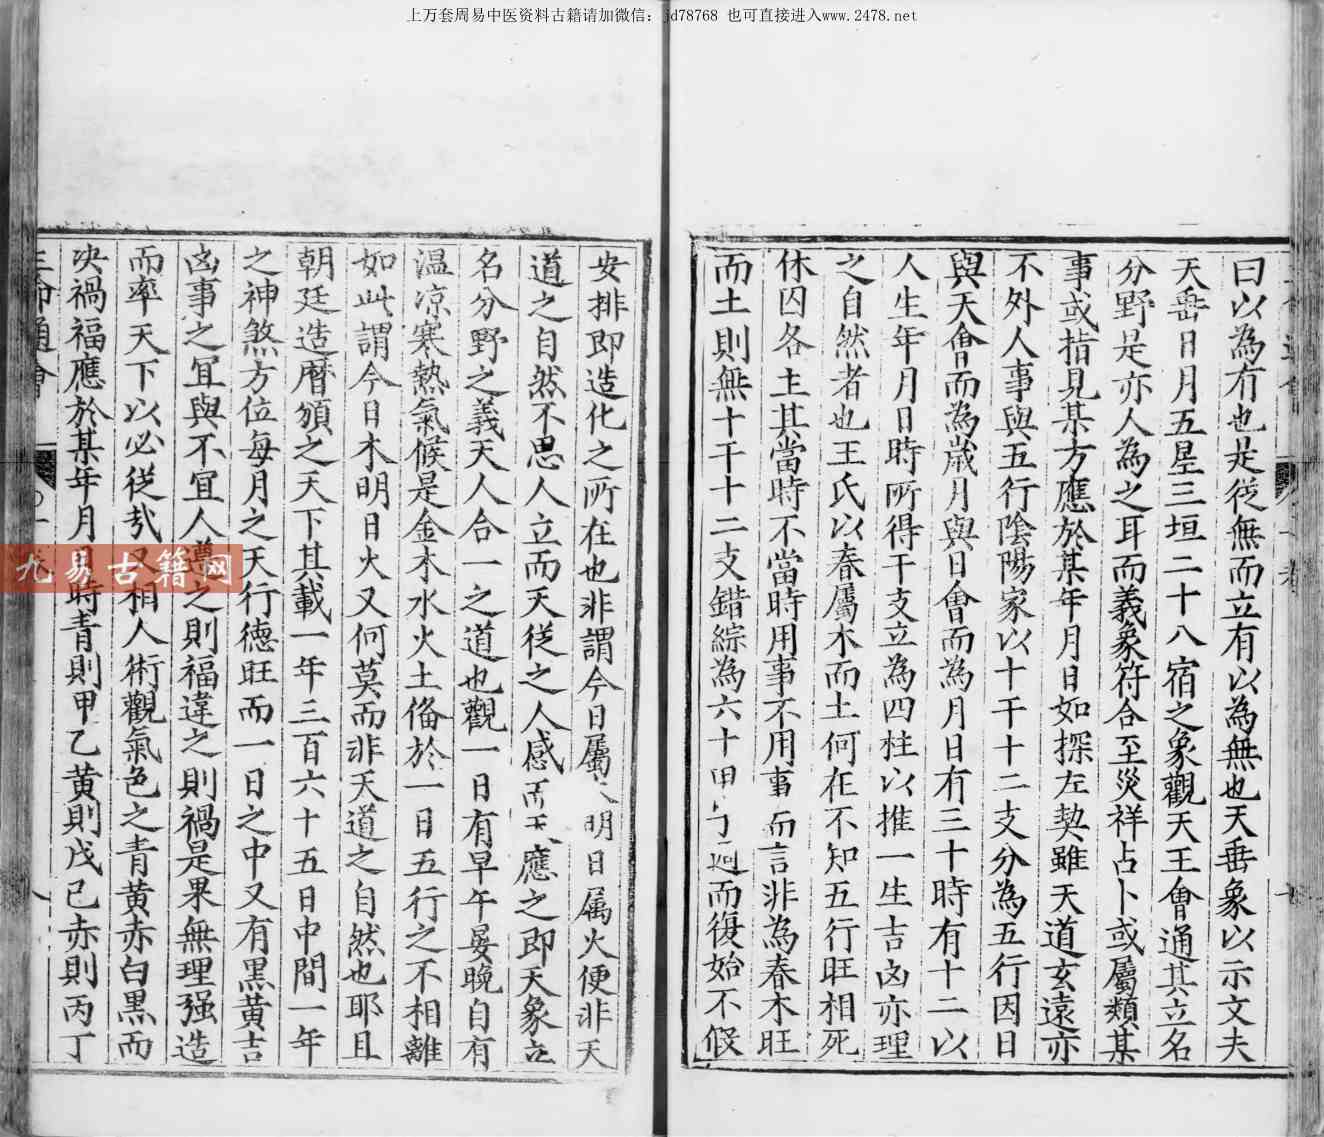 上万套周易中医资料古籍请加微信：jd78768 也可直接进入www.2478.net
曰以為有也是從無而立有以為無也天垂象以示文夫
天垂日月五星三垣二十八宿之象觀天王會通其立名
分野是亦人為之耳而義象符合至災祥占卜或屬類某
事或指見某方應於某年月日如探左契雖天道玄遠亦
不外人事與五行陰陽家以十干十二支分為五行因日
與天會而為歲月與日會而為月日有三十時有十二以
人生年月日時所得干支立為四柱以推一生吉凶亦理
之自然者也王氏以春屬木而土何在不知五行旺相死
休囚各主其當時不當時用事不用事而言非為春木旺
而土則無十干十二支錯綜為六十甲而復始不假
安排即造化之所在也非謂今日屬明日属火便非天
道之自然不思人立而天從之人感而天應之即天象立
名分野之義天人合一之道也觀一日有早午晏晚自有
温凉寒熱氣候是金木水火土俻於一日五行之不相離
如此謂今日木明日火又何莫而非天道之自然也耶且
朝廷造曆頒之天下其載一年三百六十五日中間一年
之神煞方位每月之天行德旺而一日之中又有黑黃吉
凶事之冝與不宜人遵之則福違之則禍是果無理强造
而率天下以必從㢤又相人術觀氣色之青黃赤白黑而
决禍福應於某年月日時青則甲乙黄則戊己赤則丙丁
三命通會
九易古籍网